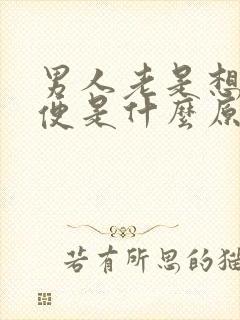 男人老是想
便是什麼原
若有所思的猫